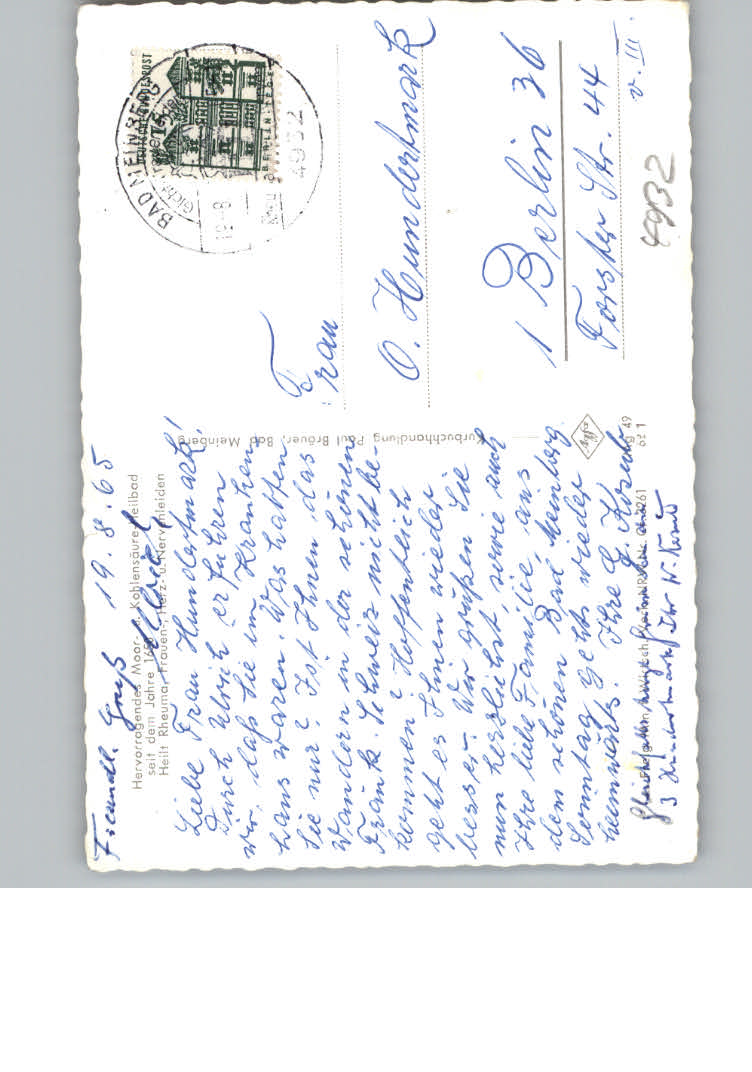 Freundl. Gruß
Ulrich
19.8.65
Hervorragendes Moor- u. Kohlensäure-Heilbad
seit dem Jahre
Heilt Rheuma, Frauen-, Herz- u. Nervenleiden
Liebe Frau Hundertmark!
Durch Ulrich erfuhren
wir, daß Sie im Kranken
haus waren. Was hatten
Sie nur? Ist Ihnen das
Wandern in der schönen
Fränk. Schweiz nicht be-
kommen? Hoffentlich
geht es Ihnen wieder
besser. Wir grüßen Sie
nun herzlichst, sowie auch
Ihre liebe Familie, aus
dem schönen Bad Meinberg.
Sonntag gehts wieder
heimwärts. Ihre
Hundertmark Ihr W.
Kurbuchhandlung Paul Bröuer, Bad Meinberg
Agfa
DEUTSCHE BUNDESPOST
15
BERLIN
BAD MEINBERG
4932
Frau
O. Hundertmark
1 Berlin 36
Forster Str. 44
v. III.
4932